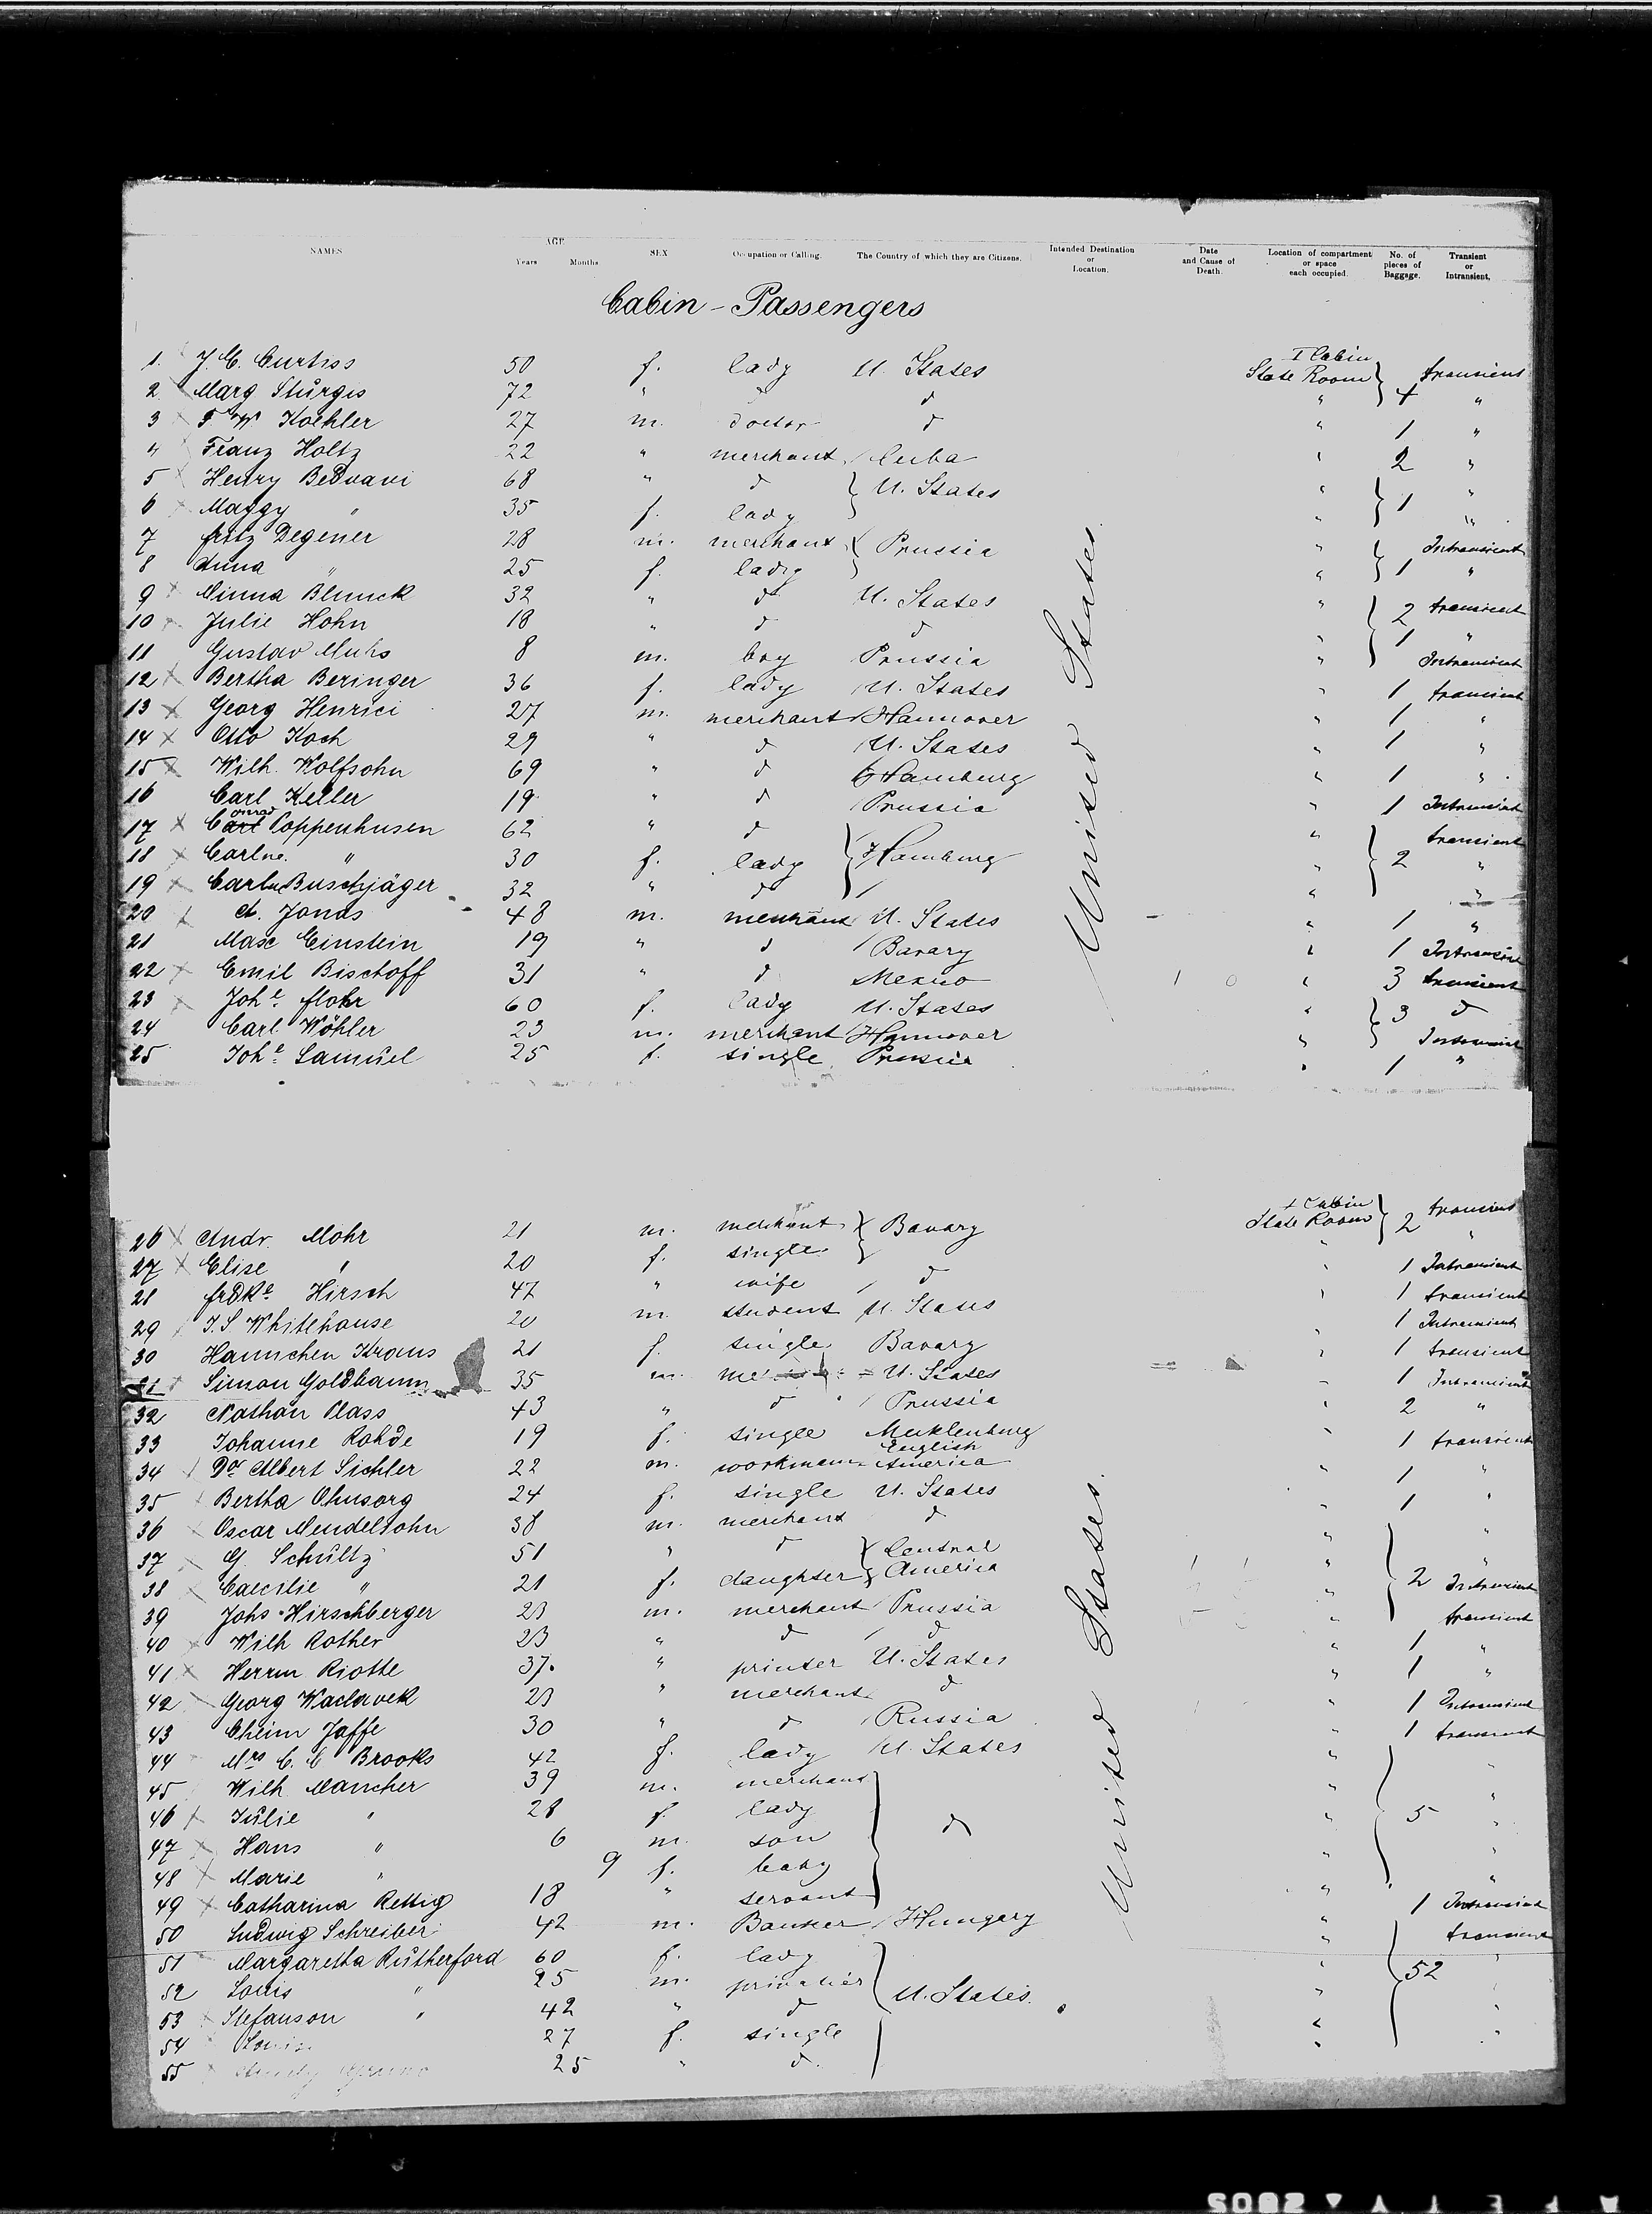 NAMES AGE Years Months SEX Occupation or Calling. The Country of which they are Citizens. Intended Destination or Location. Date and Cause of Death. Location of compartment or space each occupied. No. of pieces of Baggage. Transient or Intransient.
Cabin - Passengers
1. J. C. Curtiss 50 f. lady U. States I Cabin State Room transient
2 Marg Sturges 72 " " d " 4 "
3 F W Koehler 27 m. doctor d " 1 "
" Franz Holtz 22 " merchant Cuba " 2 "
5 Henry 68 " d U. States " 1 "
6 Maggy " 35 f. lady " "
7 Fritz Degener 28 m. merchant Prussia " 1 Intransient
8 Anna " 25 f. lady " "
9 Minna Blunck 32 " d U. States " 2 transient
10 Julie Hohn 18 " d d " 1 "
11 Gustav Muhs 8 m. boy Prussia " Intransient
12 Bertha Beringer 36 f. lady U. States " 1 transient
13 Georg Henrici 27 m. merchant Hannover " 1 "
14 Otto Koch 29 " d U. States " 1 "
15 Wilh. Wolfsohn 69 " d Hamburg " 1 "
16 Carl Keller 19 " d Prussia " 1 Intransient
17 Conrad Poppenhusen 62 " d Hamburg " 2 transient
18 Carlne. " 30 f. lady " "
19 Carlne Buschjäger 32 " d " "
20 A. Jonas 48 m. merchant U. States " 1 "
21 Max Einstein 19 " d Bavary " 1 Intransient
22 Emil Bischoff 31 " d Mexico 1 0 " 3 transient
23 Johe. Mohr 60 f. lady U. States " 3 d
24 Carl Wöhler 23 m. merchant Hannover " Intransient
25 Johe. Samuel 25 f. single Prussia " 1 "
United States
26 Andr. Mohr 21 m. merchant Bavary I Cabin State Room 2 transient
27 Elise " 20 f. single " "
28 Frdke Hirsch 47 " wife d " 1 Intransient
29 J. S Whitehouse 20 m. student U. States " 1 transient
30 Hannchen Kraus 21 f. single Bavary " 1 Intransient
31 Simon Goldbaum 35 m. U. States 1 transient
32 Nathan Plass 43 " d Prussia " 1 Intransient
33 Johanne Rohde 19 f. single Mecklenburg " 2 "
34 Dor Albert Sichler 22 m. workman English America " 1 transient
35 Bertha Ohnsorg 24 f. single U. States " 1 "
36 Oscar Mendelsohn 38 m. merchant d " 1 "
37 G. Schultz 51 " d Central America " 2 "
38 Caecilie " 21 f. daughter " "
39 Johs Hirschberger 23 m. merchant Prussia " Intransient
40 Wilh Rother 23 " d d " 1 transient
41 Herrm Riotte 37. " printer U. States " 1 "
42 Georg Waclavek 23 " merchant d " 1 "
43 Cheim Jaffe 30 " d Russia " 1 Intransient
44 Mrs C. C Brooks 42 f. lady U. States " 1 transient
45 Wilh Mancher 39 m. merchant d " 5 "
46 Julie " 28 f. lady " "
47 Hans " 6 m. son " "
48 Marie " 9 f. baby " "
49 Catharina Rettig 18 " servant " "
50 Ludwig Schreiber 42 m. Banker Hungary " 1 Intransient
51 Margaretha Rutherford 60 f. lady U. States. " 52 transient
52 Louis " 25 m. privatier " "
53 Stefanson " 42 " d " "
54 27 f. single " "
55 25 " d. "
United States.